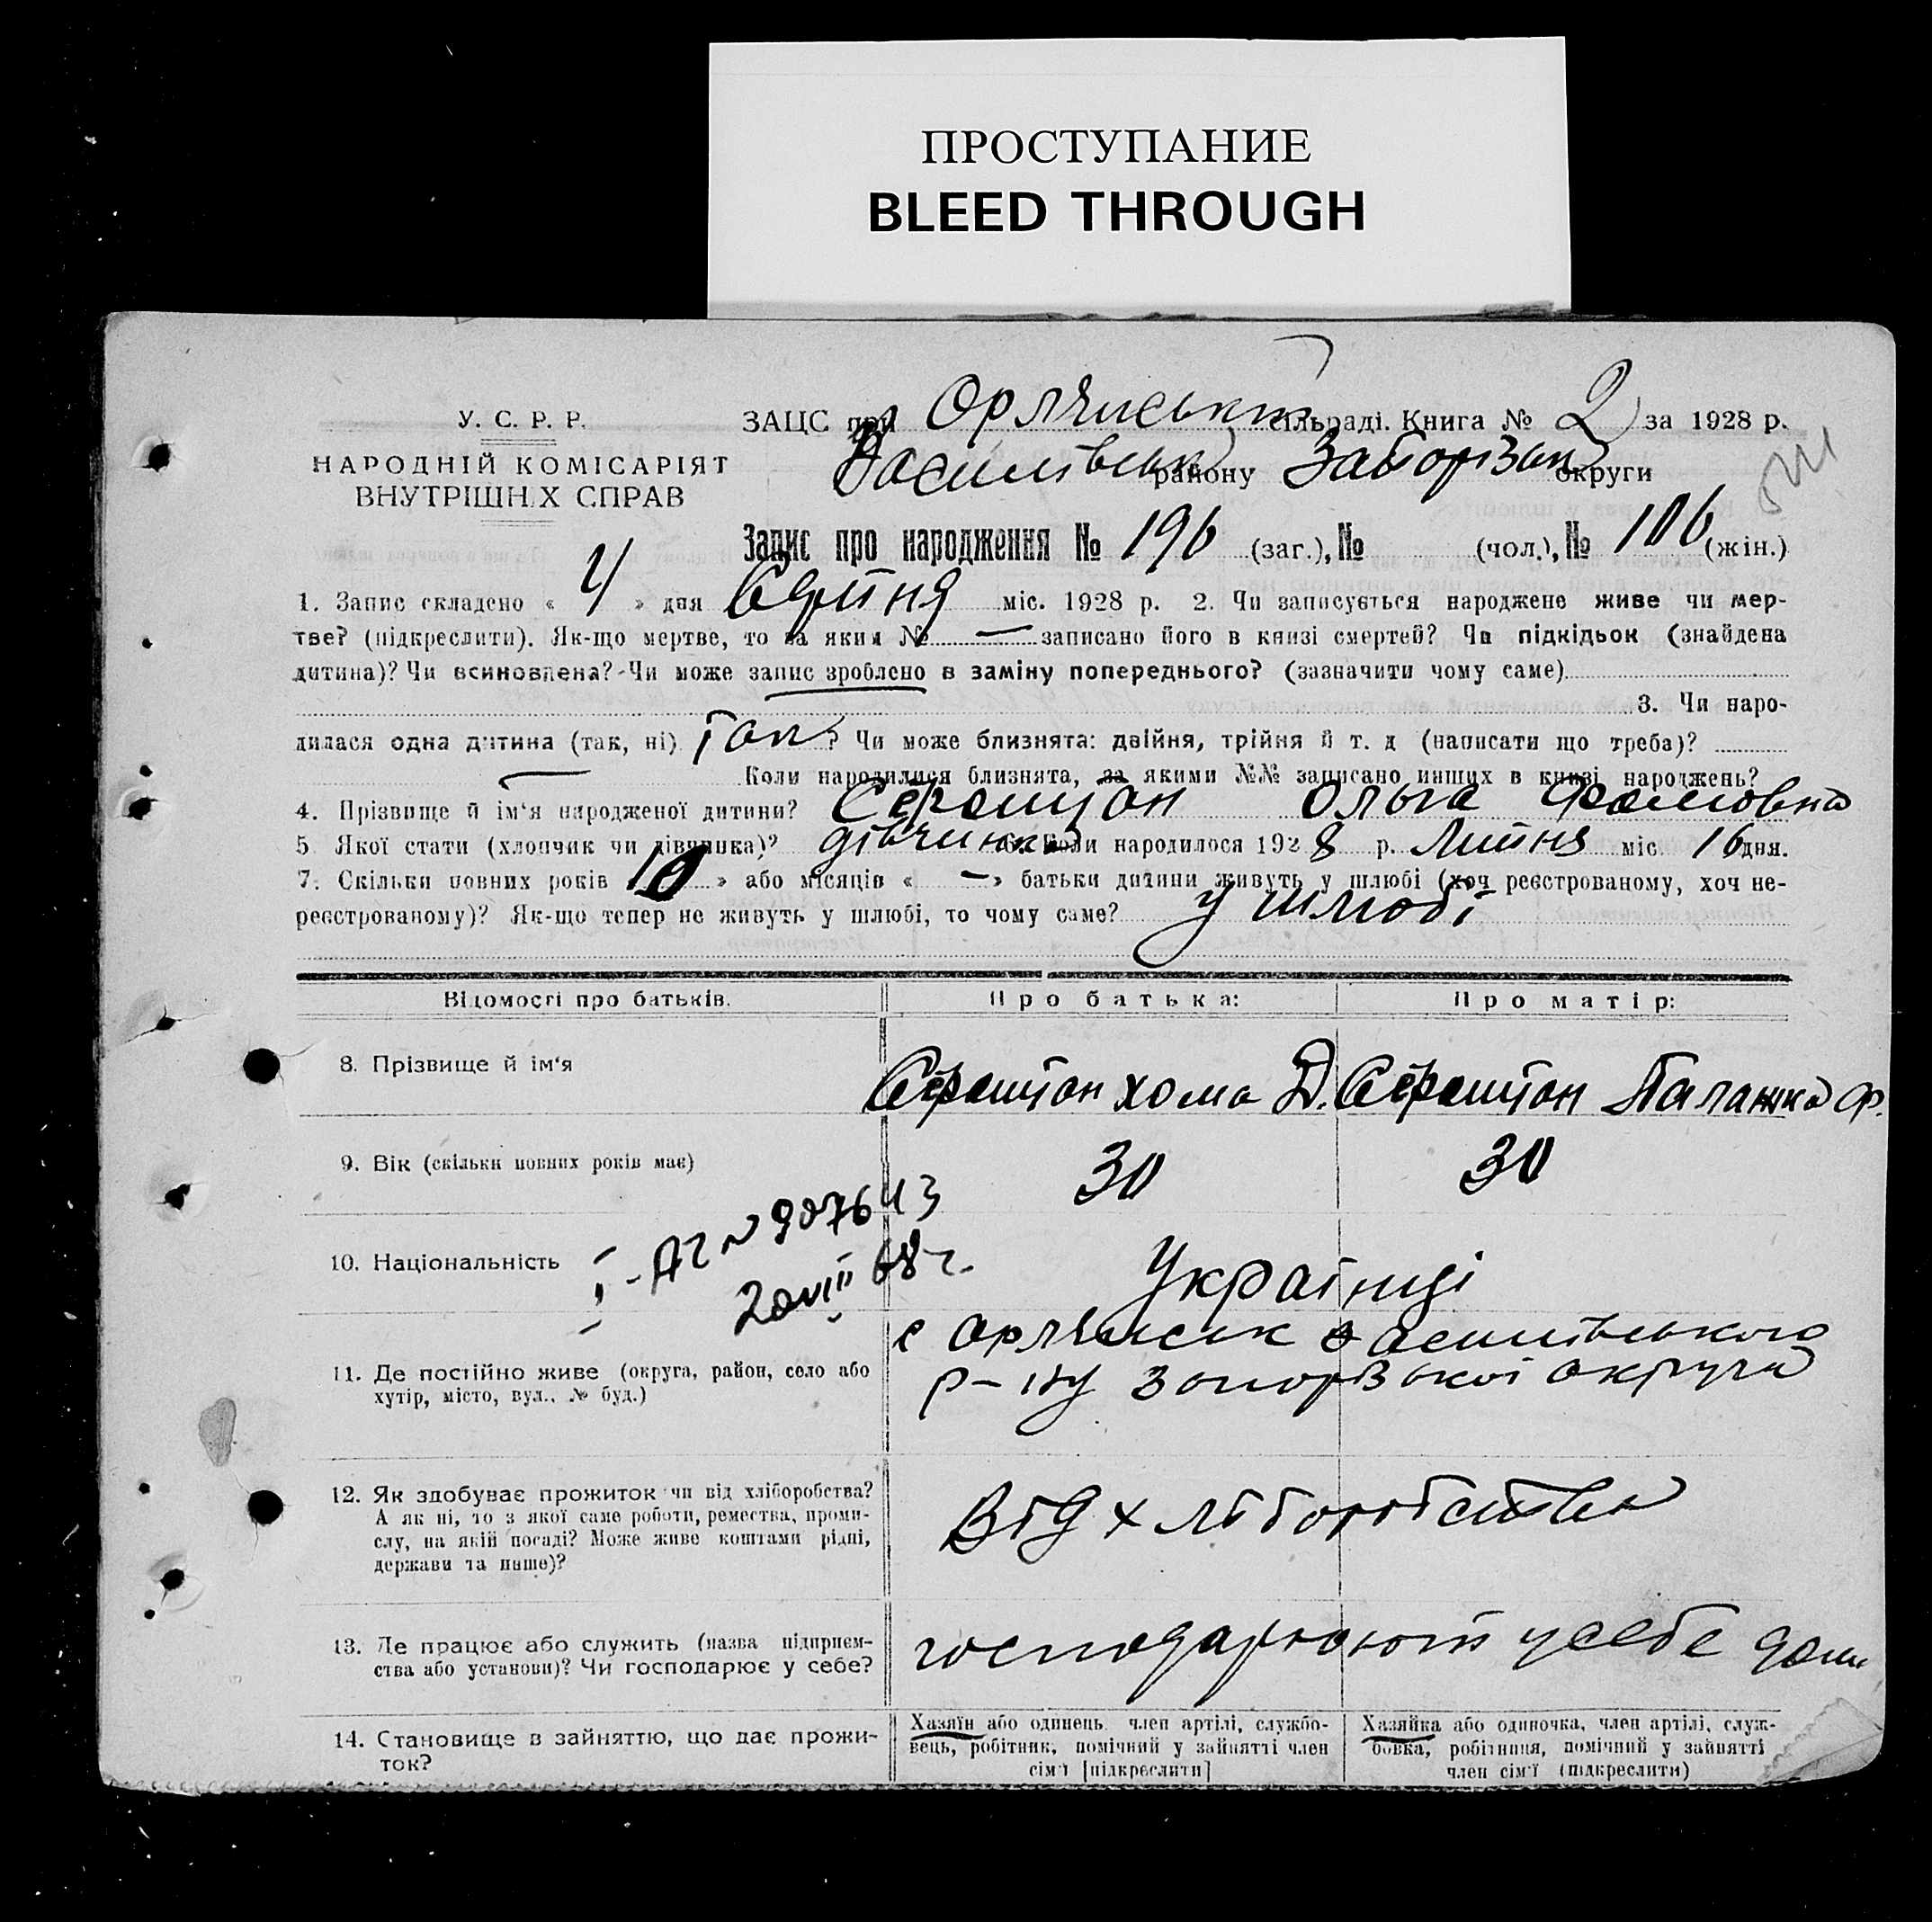 ПРОСТУПАНИЕ
BLEED THROUGH
У. С. Р. Р.
НАРОДНІЙ КОМІСАРІЯТ
ВНУТРІШНІХ СПРАВ
ЗАЦС при Орлянській сільраді. Книга № 2 за 1928 р.
Василівськ району Запорізьк округи
Запис про народження № 196 (заг.), № (чол.), № 106 (жін.)
1. Запис складено « 4 » дня Серпня міс. 1928 р. 2. Чи записується народжене живе чи мер-
тве? (підкреслити). Як-що мертве, то за яким № — записано його в книзі смертей? Чи підкідьок (знайдена
дитина)? Чи всиновлена? Чи може запис зроблено в заміну попереднього? (зазначити чому саме)
3. Чи наро-
дилася одна дитина (так, ні) Так ? Чи може близнята: двійня, трійня й т. д (написати що треба)?
— Коли народилися близнята, за якими №№ записано инших в книзі народжень?
4. Прізвище й ім'я народженої дитини? Ольга Фомовна
5 Якої стати (хлопчик чи дівчинка)? дівчинка 6. Коли народилося 1928 р. Липня міс 16 дня.
7. Скільки повних років 10 » або місяців « — » батьки дитини живуть у шлюбі (хоч реєстрованому, хоч не-
реєстрованому)? Як-що тепер не живуть у шлюбі, то чому саме? у шлюбі
Відомості про батьків. Про батька: Про матір:
8. Прізвище й ім'я Хома Д. Палажка Ф.
9. Вік (скільки повних років має) 30 30
10. Національність Українці
I-АГ № 907643
20 VIII 68 г.
11. Де постійно живе (округа, район, село або
хутір, місто, вул., № буд.)
с Орлянськ Василівського
р-ну Запорізької округи
12. Як здобуває прожиток чи від хліборобства?
А як ні, то з якої саме роботи, ремества, проми-
слу, на якій посаді? Може живе коштами рідні,
держави та инше)?
Від хліборобства
13. Де працює або служить (назва підприєм-
ства або установи)? Чи господарює у себе?
господарюють у себе дома
14. Становище в зайняттю, що дає прожи-
ток?
Хазяїн або одинець, член артілі, службо-
вець, робітник, помічний у зайнятті член
сім'ї [підкреслити]
Хазяйка або одиночка, член артілі, служ-
бовка, робітниця, помічний у зайнятті
член сім'ї (підкреслити)